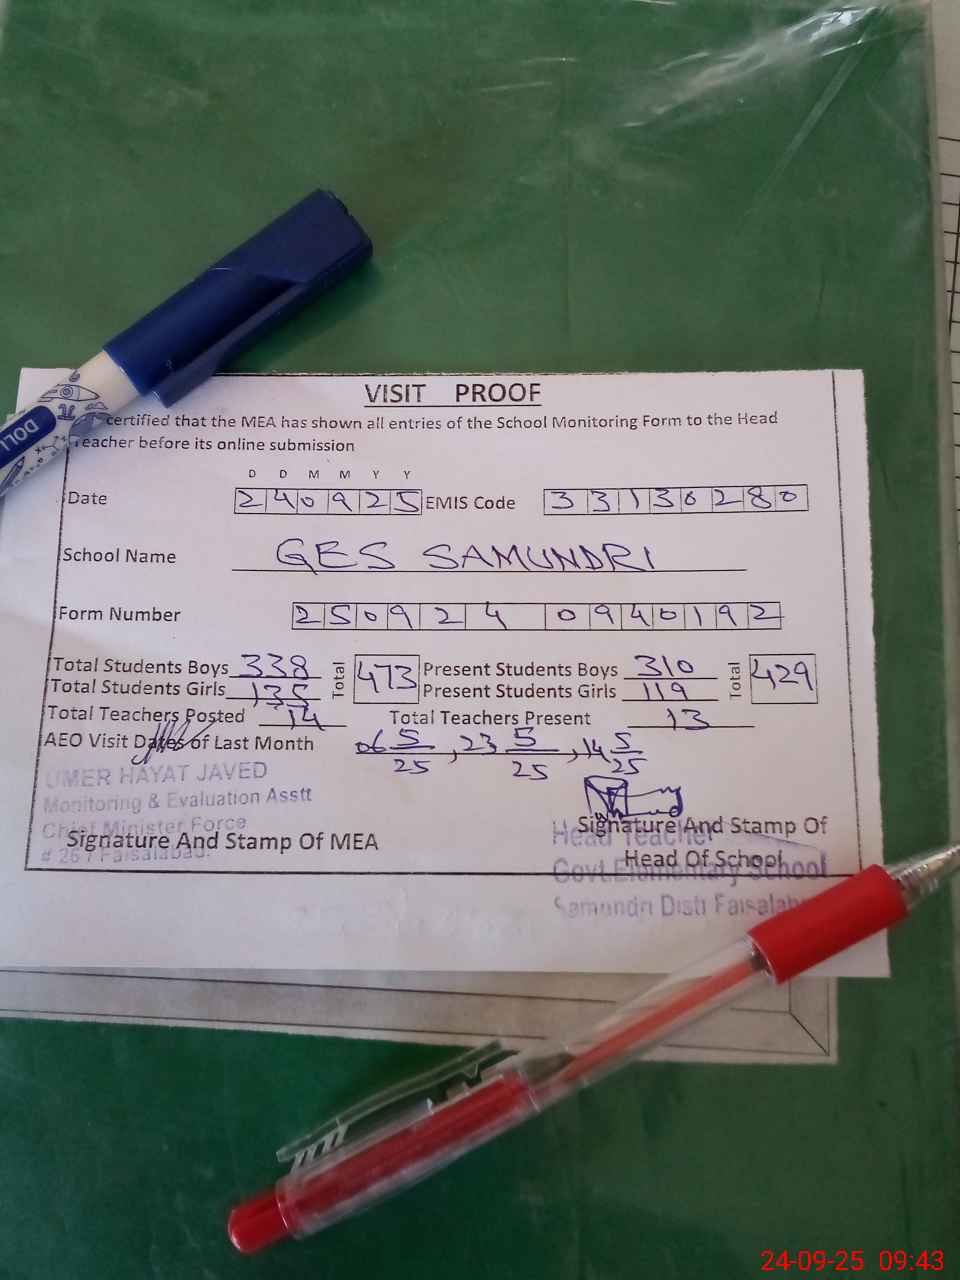 VISIT PROOF
certified that the MEA has shown all entries of the School Monitoring Form to the Head
Teacher before its online submission
D D M M Y Y
Date 240925 EMIS Code 33130280
School Name GES SAMUNDRI
Form Number 250924 0940192
Total Students Boys 338 Total 473 Present Students Boys 310 Total 429
Total Students Girls 135 Present Students Girls 119
Total Teachers Posted 14 Total Teachers Present 13
AEO Visit Dates of Last Month 06 5/25, 23 5/25, 14 5/25
UMER HAYAT JAVED
Monitoring & Evaluation Asstt
Chief Minister Force
# 267 Faisalabad.
Signature And Stamp Of MEA
Signature And Stamp Of
Head Of School
Head Teacher
Govt. Elementary School
Samundri Distt Faisalab
DOLL
24-09-25 09:43